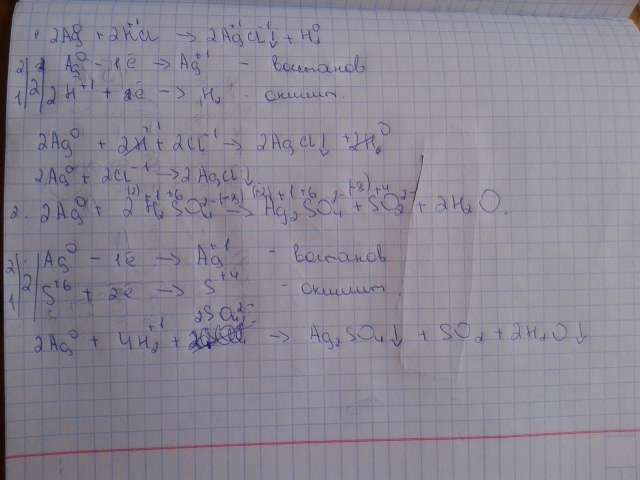 1. 2Ag⁰ + 2H⁺¹Cl → 2Ag⁺¹Cl⁻¹↓ + H₂⁰
2| 2| Ag⁰ - 1ē → Ag⁺¹ - востанов
1| 2| 2H⁺¹ + 2ē → H₂ - окислит.
2Ag⁰ + 2H⁺¹ + 2Cl⁻¹ → 2AgCl↓ + H₂⁰
2Ag⁰ + 2Cl⁻¹ → 2AgCl↓
2. 2Ag⁰ + 2H₂⁺¹S⁺⁶O₄²⁻ → Ag₂⁺¹S⁺⁶O₄²⁻ + S⁺⁴O₂²⁻ + 2H₂O.
2| 2| Ag⁰ - 1ē → Ag⁺¹ - востанов
1| 2| S⁺⁶ + 2ē → S⁺⁴ - окислит.
2Ag⁰ + 4H₂⁺¹ + 2SO₄²⁻ → Ag₂SO₄↓ + SO₂ + 2H₂O↓